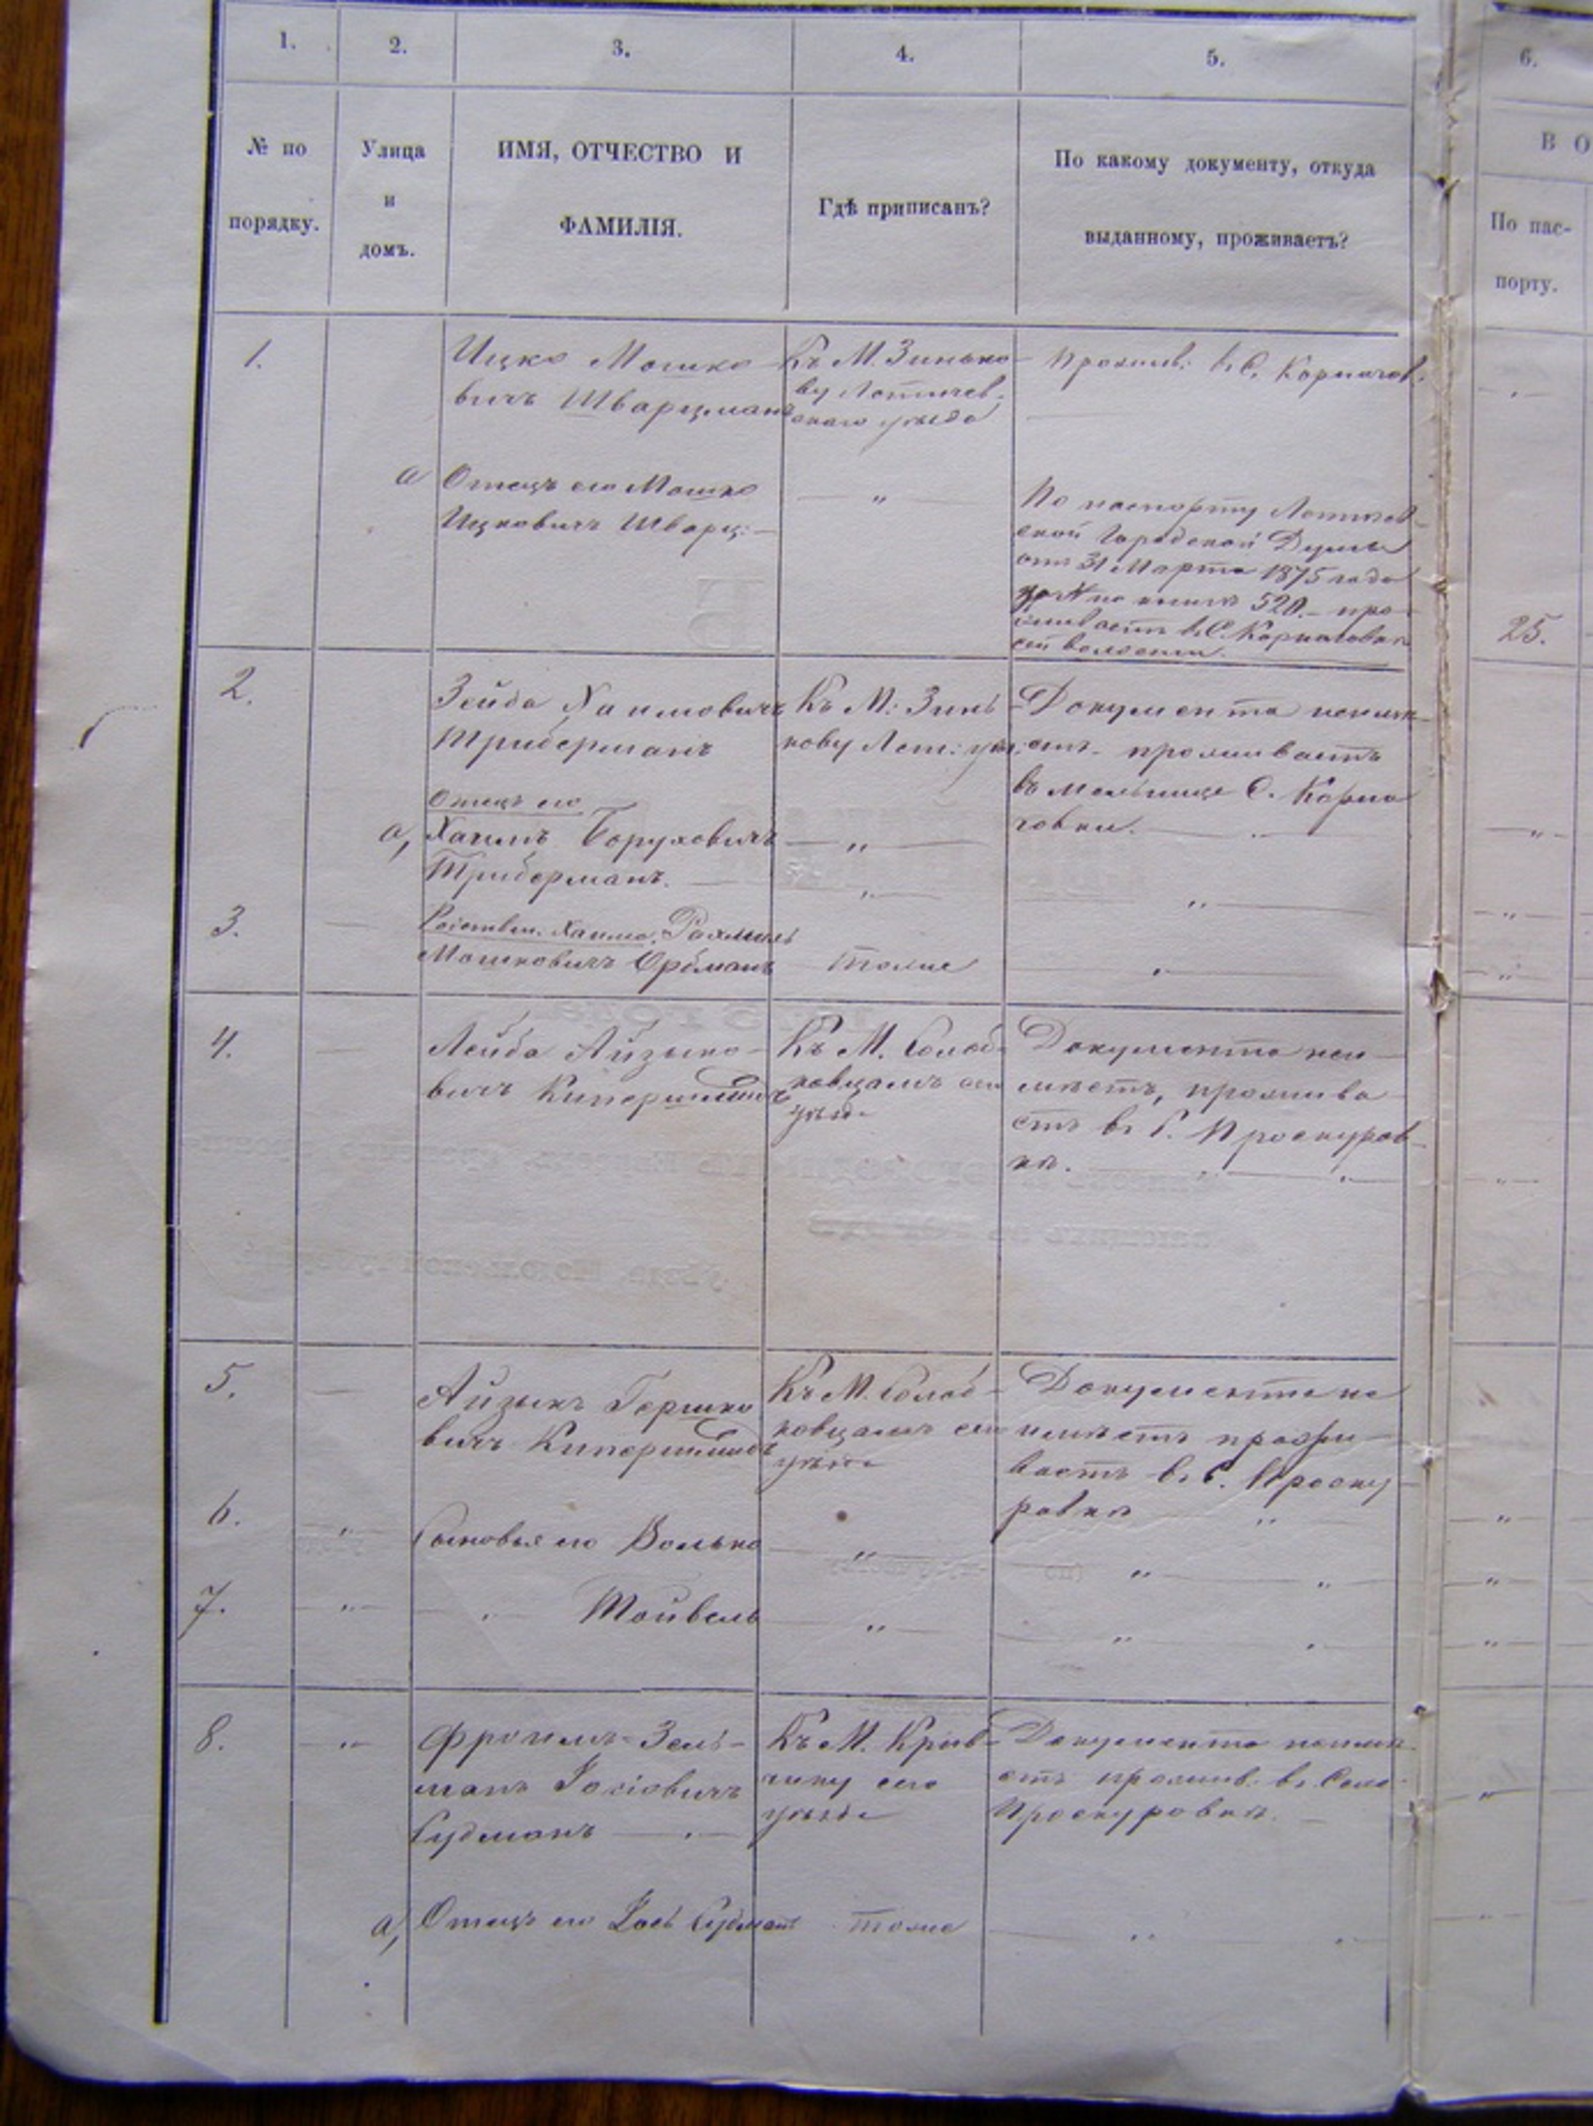 1.
2.
3.
4.
5.
6.
№ по
порядку.
Улица
и
домъ.
ИМЯ, ОТЧЕСТВО И
ФАМИЛІЯ.
Гдѣ приписанъ?
По какому документу, откуда
выданному, проживаетъ?
В О
По пас-
порту.
1.
Ицко Мошко-
вичъ Шварцманъ
Къ М. Зинько-
ву Летичев-
скаго уѣзда
Прожив: въ С. Корначов.
а
Отецъ его Мошко
Ицковичъ Шварц:
"
По паспорту Летичев-
ской Городской Думы
отъ 31 Марта 1875 года
за № по книгѣ 520. – про-
живаетъ въ С. Корначовк
ой волости.
25.
2.
Зейда Хаимовичъ
Триберманъ
Къ М: Зинь-
кову Лет: уѣз:
Документа неимѣ-
етъ – проживаетъ
въ мельнице С. Корна
човки.
Отецъ его
а, Хаимъ Боруховичъ
Триберманъ.
"
"
"
"
3.
Родствен. Хаима, Рахмиль
Мошковичъ Ордманъ
тоже
"
"
4.
Лейба Айзыко-
вичъ Кипершмидтъ
Къ М. Солод-
ковцамъ сего
уѣзда
Документа неи-
мѣетъ, прожива-
етъ въ С. Проскуров-
кѣ.
"
5.
Айзыкъ Гершко
вичъ Кипершмидтъ
Къ М. Солод-
ковцамъ сего
уѣзда
Документа не
имѣетъ прожи-
ваетъ въ С. Проску
ровкѣ
"
6.
"
Сыновья его Волько
"
"
"
7.
"
"
Тойвель
"
"
"
8.
"
Фроимъ-Зель-
манъ Іосіовичъ
Судманъ
Къ М. Крив-
чику сего
уѣзда
Документа неимѣ-
етъ прожив: въ Селѣ
Проскуровкѣ.
"
а,
Отецъ его Іось Судманъ
тоже
"
"